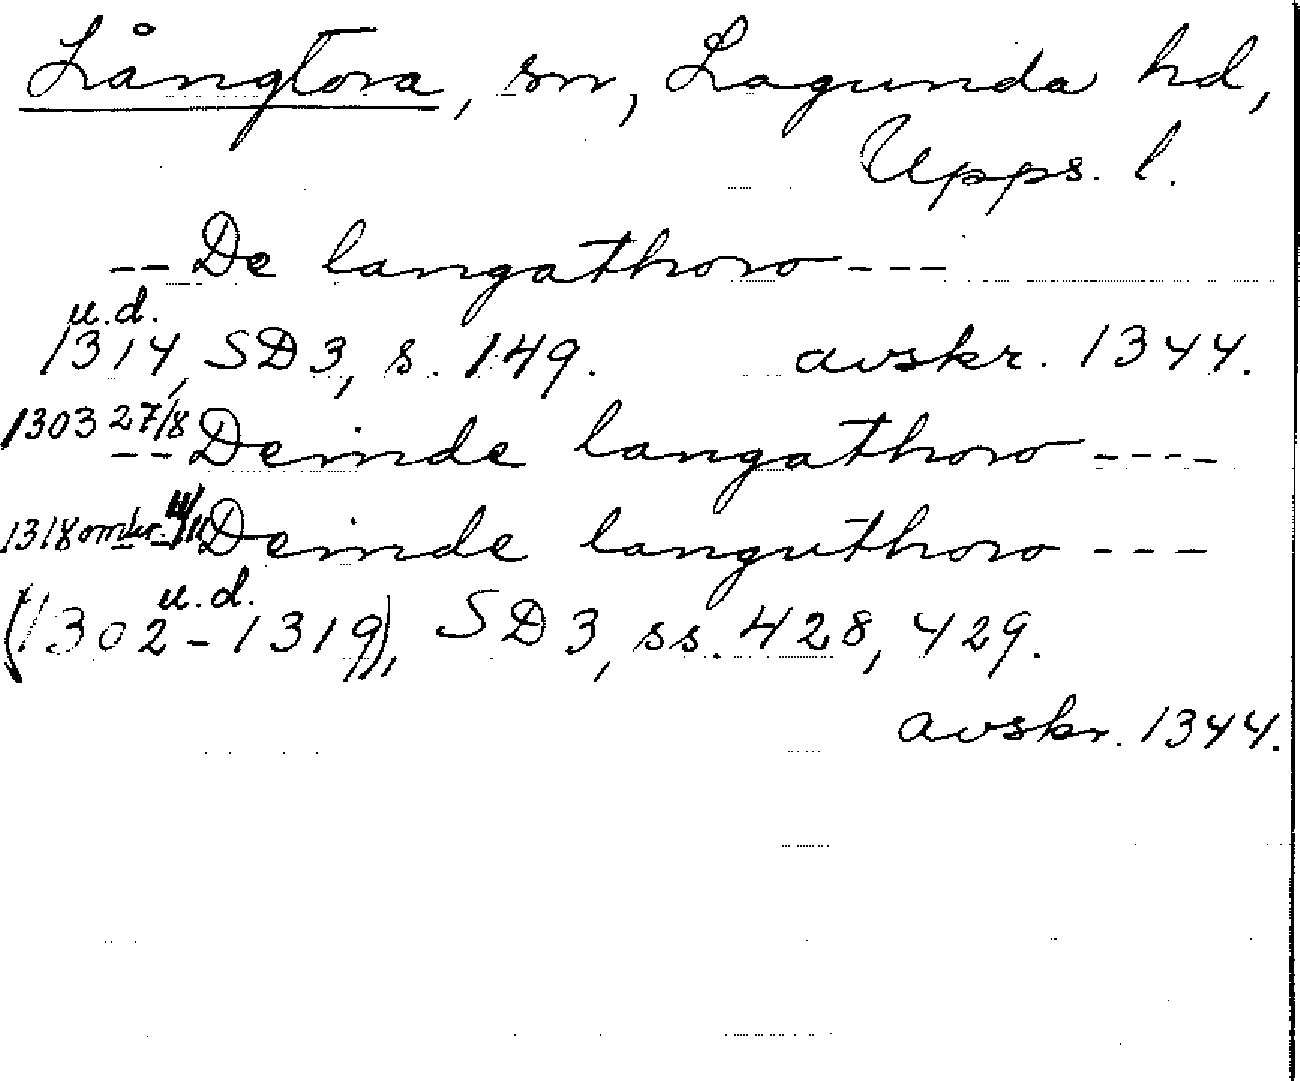 Långtora, sn, Lagunda hd,
Upps. l.
-- De langathoro ---
u.d.
1314, SD 3, s. 149. avskr. 1344.
1303 27/8 -- Deinde langathoro ----
1318 omkr. 11/11 Deinde languthoro ---
u.d.
(1302-1319), SD 3, ss. 428, 429.
avskr. 1344.